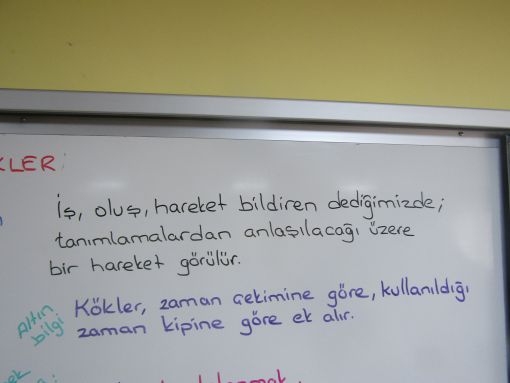 KLER:
İş, oluş, hareket bildiren dediğimizde;
tanımlamalardan anlaşılacağı üzere
bir hareket görülür.
Altın
bilgi
Kökler, zaman çekimine göre, kullanıldığı
zaman kipine göre ek alır.